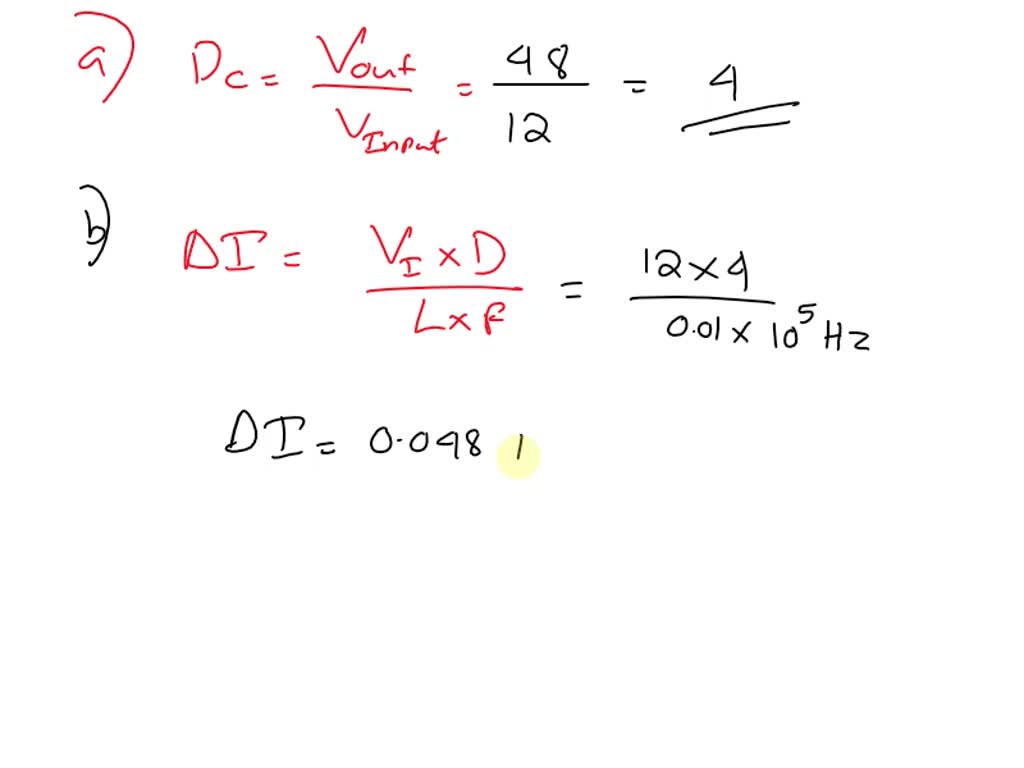 a) Dc = Vout / VInput = 48 / 12 = 4
b) ΔI = VI × D / L × F = 12 × 4 / 0.01 × 10^5 Hz
ΔI = 0.048